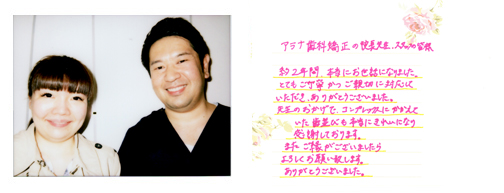 アラナ歯科矯正の院長先生、スタッフの皆様
約2年間、本当にお世話になりました。
とてもご丁寧かつご親切に対応して
いただき、ありがとうございました。
先生のおかげで、コンプレックスにかかえて
いた歯並びも本当にきれいになり
感謝しております。
またご縁がございましたら
よろしくお願い致します。
ありがとうございました。